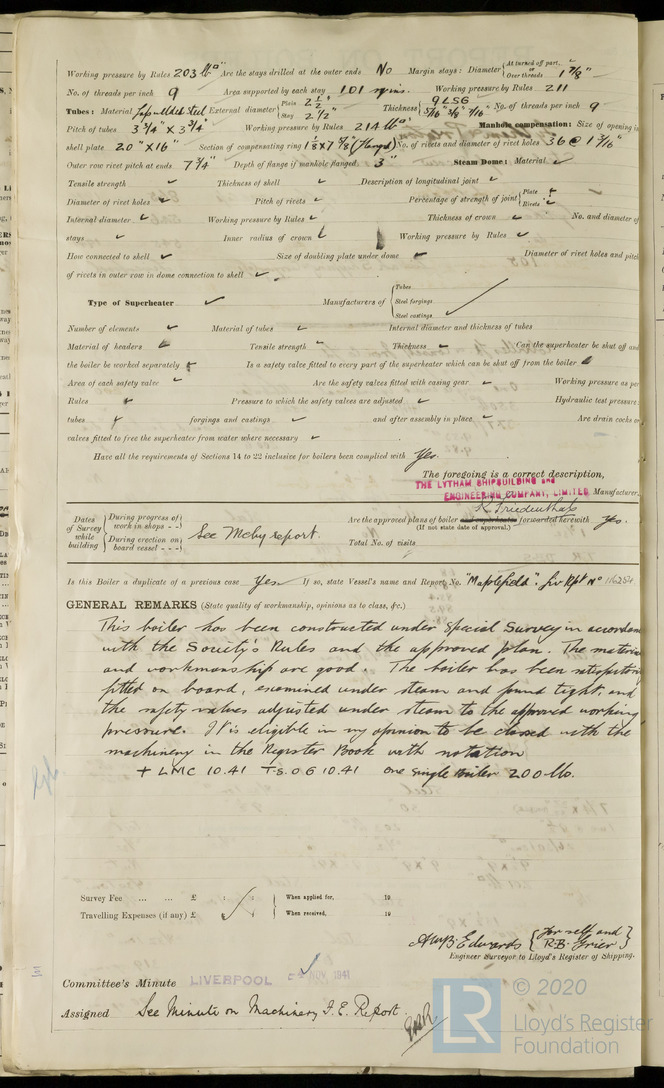 Working pressure by Rules 203 lb□" Are the stays drilled at the outer ends No Margin stays: Diameter { At turned off part, ✓ or Over threads 1 7/8"
No. of threads per inch 9 Area supported by each stay 101 sq ins. Working pressure by Rules 211
Tubes: Material Lap welded steel External diameter { Plain 2 1/2" Stay 2 1/2" Thickness { 9 LSG 5/16" 3/8" 7/16" No. of threads per inch 9
Pitch of tubes 3 3/4" x 3 3/4" Working pressure by Rules 214 lb□" Manhole compensation: Size of opening in
shell plate 20" x 16" Section of compensating ring 1 1/8 x 7 7/8 (flanged) No. of rivets and diameter of rivet holes 36 @ 1 5/16"
Outer row rivet pitch at ends 7 3/4" Depth of flange if manhole flanged: 3" Steam Dome: Material ✓
Tensile strength ✓ Thickness of shell ✓ Description of longitudinal joint ✓
Diameter of rivet holes ✓ Pitch of rivets ✓ Percentage of strength of joint { Plate ✓ Rivets ✓
Internal diameter ✓ Working pressure by Rules ✓ Thickness of crown ✓ No. and diameter of
stays ✓ Inner radius of crown ✓ Working pressure by Rules ✓
How connected to shell ✓ Size of doubling plate under dome ✓ Diameter of rivet holes and pitch
of rivets in outer row in dome connection to shell ✓
Type of Superheater ✓ Manufacturers of { Tubes Steel forgings Steel castings ✓
Number of elements ✓ Material of tubes ✓ Internal diameter and thickness of tubes
Material of headers ✓ Tensile strength ✓ Thickness ✓ Can the superheater be shut off and
the boiler be worked separately ✓ Is a safety valve fitted to every part of the superheater which can be shut off from the boiler ✓
Area of each safety valve ✓ Are the safety valves fitted with easing gear ✓ Working pressure as per
Rules ✓ Pressure to which the safety valves are adjusted ✓ Hydraulic test pressure:
tubes ✓ forgings and castings ✓ and after assembly in place ✓ Are drain cocks or
valves fitted to free the superheater from water where necessary ✓
Have all the requirements of Sections 14 to 22 inclusive for boilers been complied with Yes.
The foregoing is a correct description,
THE LYTHAM SHIPBUILDING and
ENGINEERING COMPANY, LIMITED Manufacturer.
Dates of Survey while building { During progress of work in shops - - During erection on board vessel - - - } See Mchy report. Are the approved plans of boiler and superheater forwarded herewith Yes.
(If not state date of approval.)
Total No. of visits
Is this Boiler a duplicate of a previous case Yes If so, state Vessel's name and Report No. "Maplefield". Liv Rpt No
GENERAL REMARKS (State quality of workmanship, opinions as to class, &c.)
This boiler has been constructed under Special Survey in accordan
with the Society's Rules and the approved plan. The material
and workmanship are good. The boiler has been satisfactorily
fitted on board, examined under steam and found tight, and
the safety valves adjusted under steam to the approved working
pressure. It is eligible in my opinion to be classed with the
machinery in the Register Book with notation
+ LMC 10.41 T.S. O G 10.41 one single boiler 200 lbs.
Survey Fee ... ... £ : : When applied for, 19
Travelling Expenses (if any) £ : : When received, 19
A.W.B. Edwards { for self and R.B. Grier }
Engineer Surveyor to Lloyd's Register of Shipping.
Committee's Minute LIVERPOOL NOV. 1941
Assigned See Minute on Machinery F. E. Report.
LR © 2020
Lloyd's Register
Foundation